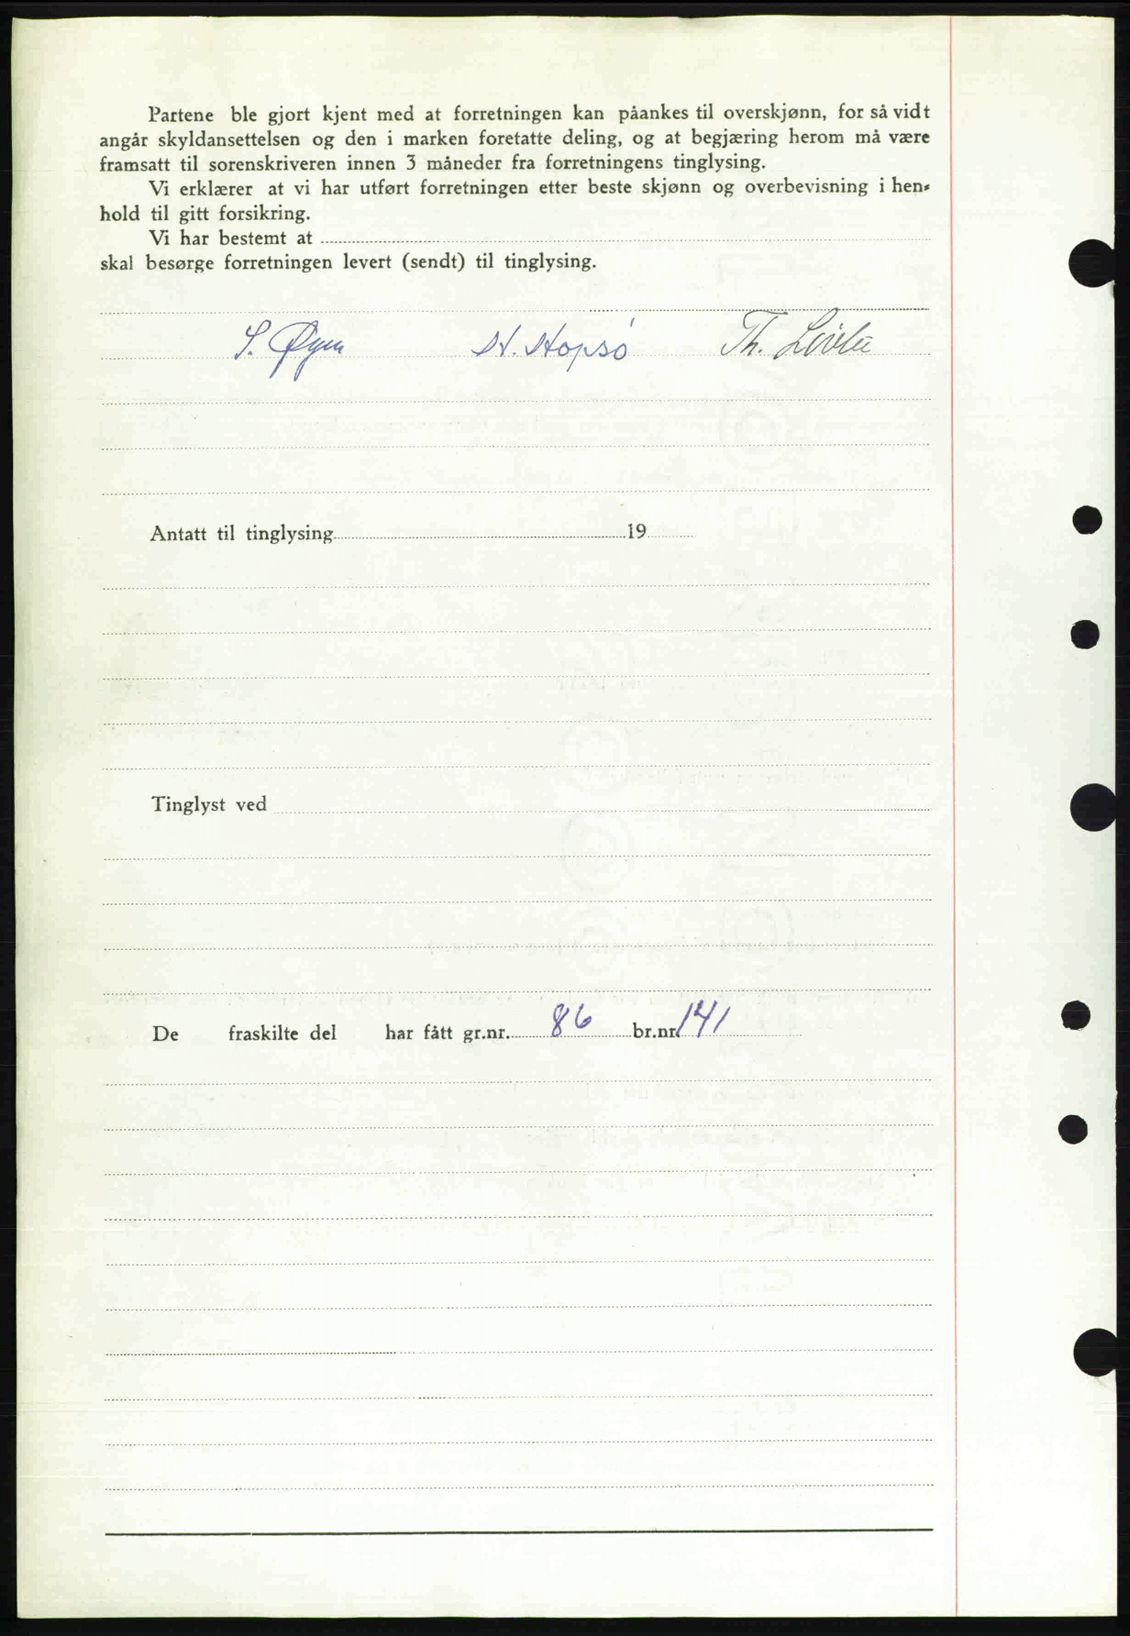 Partene ble gjort kjent med at forretningen kan påankes til overskjønn, for så vidt
angår skyldansettelsen og den i marken foretatte deling, og at begjæring herom må være
framsatt til sorenskriveren innen 3 måneder fra forretningens tinglysing.
Vi erklærer at vi har utført forretningen etter beste skjønn og overbevisning i hen-
hold til gitt forsikring.
Vi har bestemt at
skal besørge forretningen levert (sendt) til tinglysing.
S. Øyen H. Hopsö Th.
Antatt til tinglysing 19
Tinglyst ved
De fraskilte del har fått gr.nr. 86 br.nr. 141